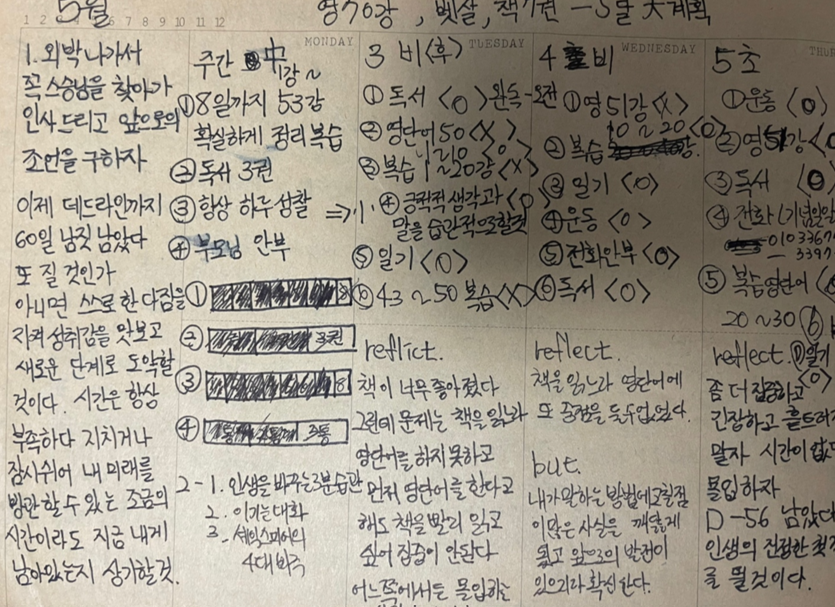 5월
영70강, 뱃살, 책7권 - 5월 大계획
1 2 3 4 5 6 7 8 9 10 11 12
1. 외박나가서
꼭 스승님을 찾아가
인사드리고 앞으로의
조언을 구하자
이제 데드라인까지
60일 남짓 남았다
또 질 것인가
아니면 스스로 한 다짐을
지켜 성취감을 맛보고
새로운 단계로 도약할
것이다. 시간은 항상
부족하다 지치거나
잠시쉬어 내 미래를
방관할 수 있는 조금의
시간이라도 지금 내게
남아있는지 상기할것.
MONDAY
주간 中
1강~
① 8일까지 53강
확실하게 정리복습
② 독서 3권
③ 항상 하루 성찰
④ 부모님 안부
①
② 3권
③ 8
④ 1통 2통 3통
2-1. 인생을 바꾸는 3분 습관
2. 이기는 대화
3. 셰익스피어의
4대 비극
TUESDAY
3 비<휴>
① 독서 <O> 완독-오전
② 영단어 50 <X>
③ 복습 1~20강 <X>
⇒ 1.
④ 긍적적 생각과 <O>
말을 습관적으로할것
⑤ 일기 <O>
⑥ 43~50 복습 <X>
reflict.
책이 너무 좋아졌다
그런데 문제는 책을 읽느라
영단어를 하지 못하고
먼저 영단어를 한다고
해도 책을 빨리 읽고
싶어 집중이 안된다
어느쪽에서든 몰입하는
WEDNESDAY
4 비
① 영 51강 <X>
10~20 <O>
② 복습
③ 일기 <O>
④ 운동 <O>
⑤ 전화안부 <O>
⑥ 독서 <O>
reflect.
책을 읽느라 영단어에
또 중점을 둘수없었다.
but.
내가 원하는 방법에 고칠점
이 많은 사실을 깨닫게
됬고 앞으로의 발전이
있으리라 확신한다.
THUR
5 초
① 운동 <O>
② 영51강 <
③ 독서 <O
④ 전화 (기념일알
⑤ 복습영단어
20~30 ⑥
reflect. ⑦ 일기
<O>
좀 더 집중하고
긴장하고 흐트러
말자 시간이 없다
몰입하자
D-56 남았다
인생의 진정한 첫
를 뗄것이다.